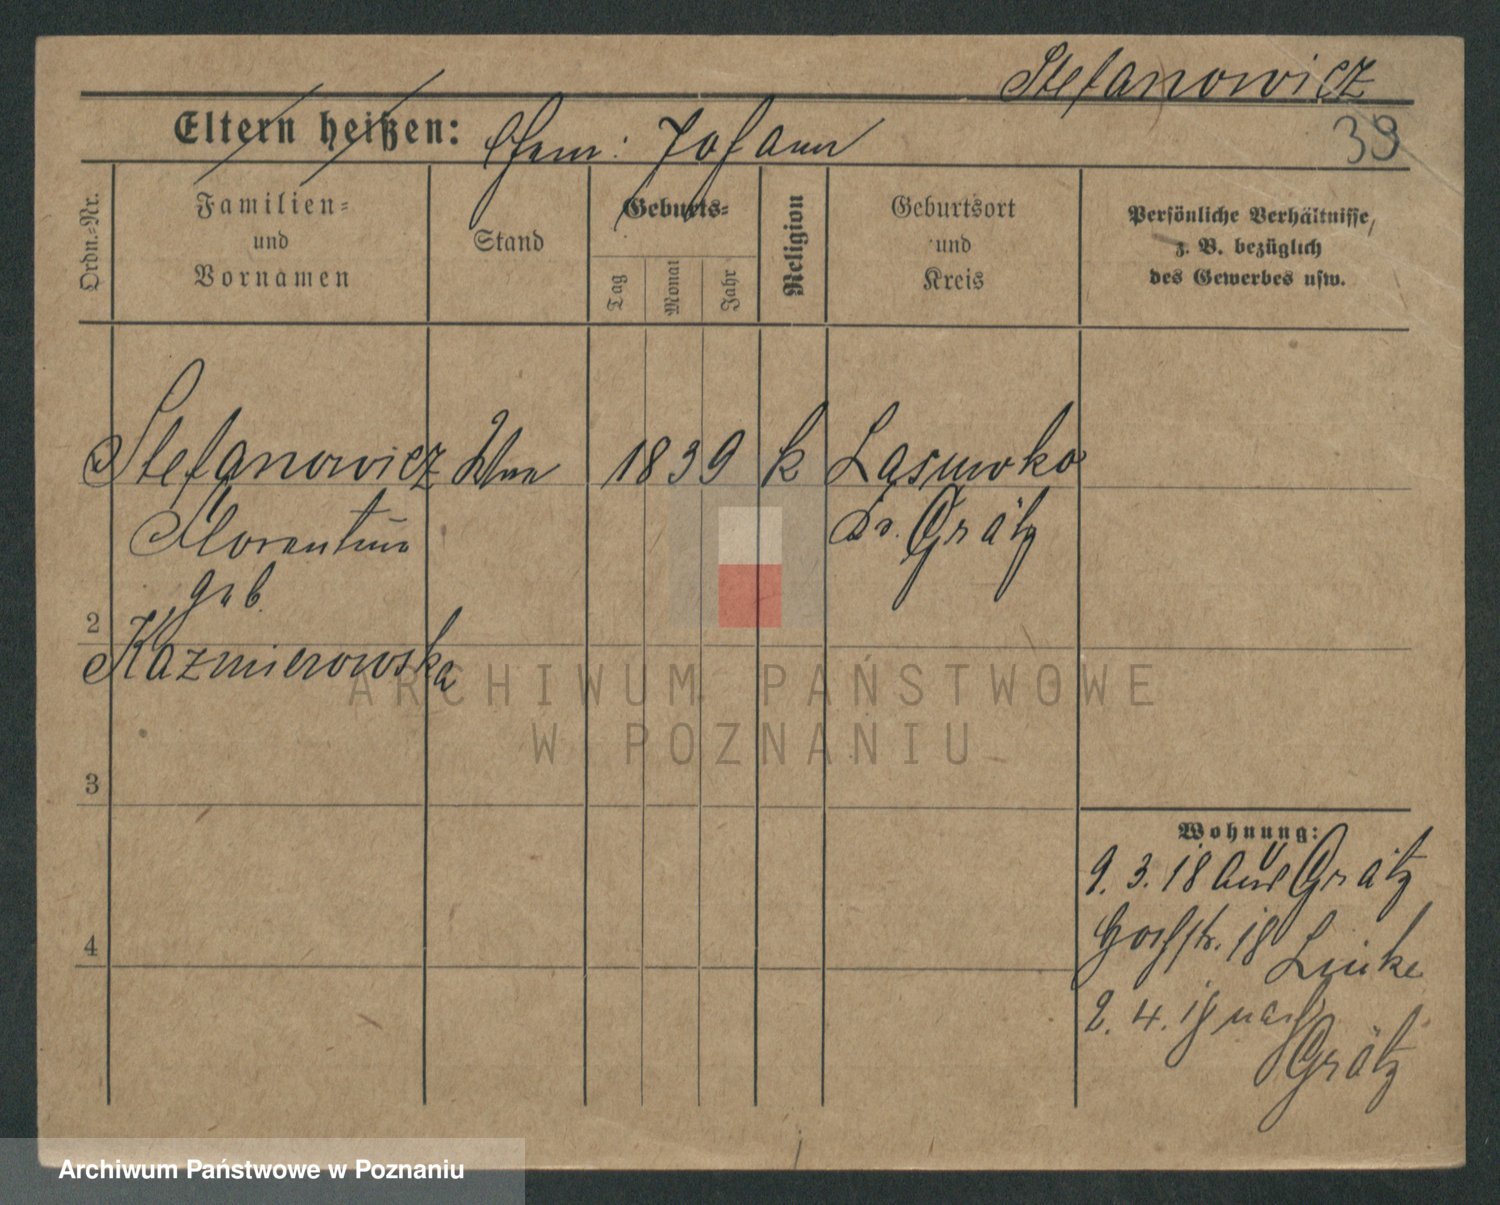 Stefanowicz
39
Eltern heißen: Ehem: Johann
Ordn.-Nr.
Familien-
und
Vornamen
Stand
Geburts-
Tag
Monat
Jahr
Religion
Geburtsort
und
Kreis
Persönliche Verhältnisse,
z. B. bezüglich
des Gewerbes usw.
Stefanowicz Wwe 1839 k Lasuwko
Florentine Kr. Grätz
geb.
2
Kazmierowska
3
Wohnung:
9. 3. 18 aus Grätz
18 Linke
4
2. 4. 18 nach
Grätz
ARCHIWUM PAŃSTWOWE
W POZNANIU
Archiwum Państwowe w Poznaniu